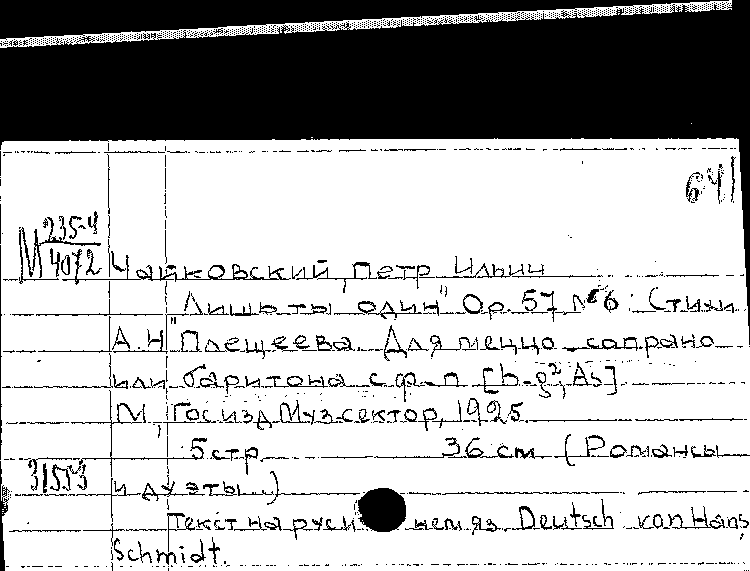 641
М 235-4
4072
Чайковский, Петр Ильич
"Лишь ты один" Op. 57, №6. Стихи
А.Н. Плещеева. Для меццо-сопрано
или баритона с ф-п. [h-g², As]
М., Госизд. Муз-сектор, 1925.
5 стр. 36 см. (Романсы
31553
и дуэты..)
Текст на русск нем.яз. Deutsch von Hans
Schmidt.